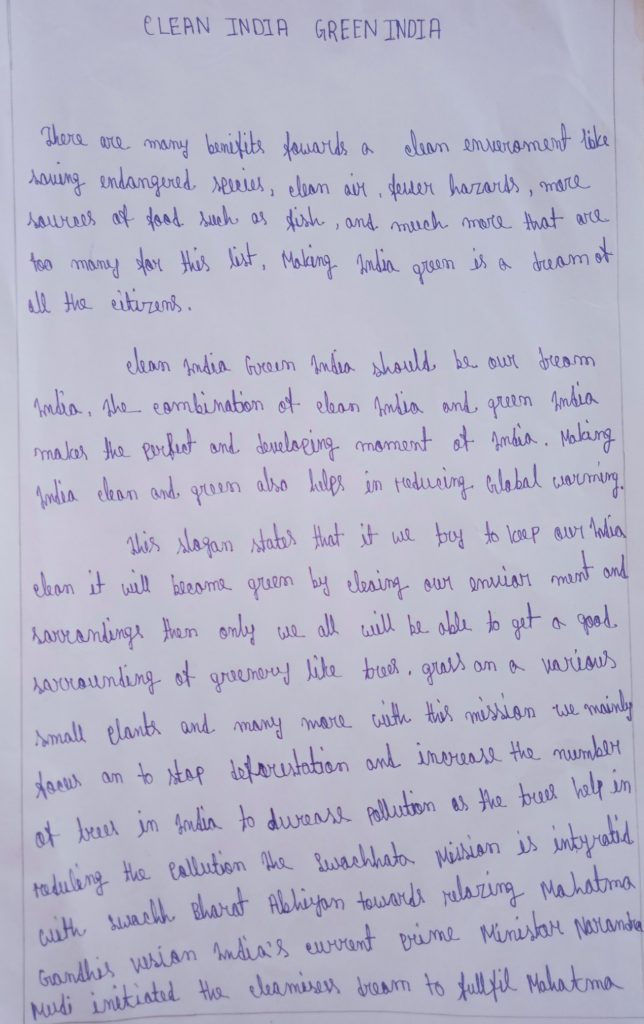 CLEAN INDIA GREEN INDIA
There are many benifits towards a clean enveroment like
saving endangered species, clean air, fewer hazards, more
sources of food such as fish, and much more that are
too many for this list. Making India green is a dream of
all the citizens.
clean India Green India should be our dream
India. The combination of clean India and green India
makes the perfect and developing moment of India. Making
India clean and green also helps in reducing Global warming.
This slogan states that if we try to keep our India
clean it will become green by cleaing our enviar ment and
sarrandings then only we all will be able to get a good
sarrounding of greenery like trees, grass an a various
small plants and many more with this mission we mainly
focus an to stop deforestation and increase the number
of trees in India to durease pollution as the trees help in
reduleng the pollution The Swachhata Mission is intyrated
with swachh Bharat Abhiyan towards relazing Mahatma
Gandhis vesian India's current prime Ministar Narandra
Mudi initiated the cleamisess dream to fullfil Mahatma